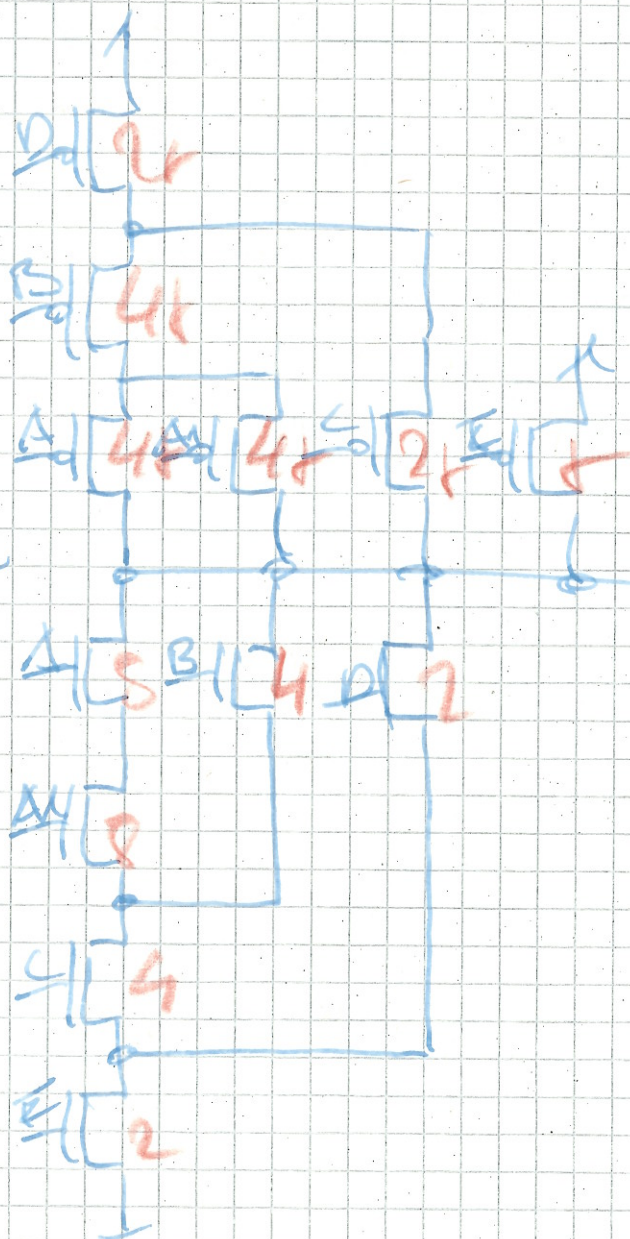 D 2r
B 4r
A 4r A1 4r C 2r E r
A 8 B 4 D 2
A1 8
C 4
E 2